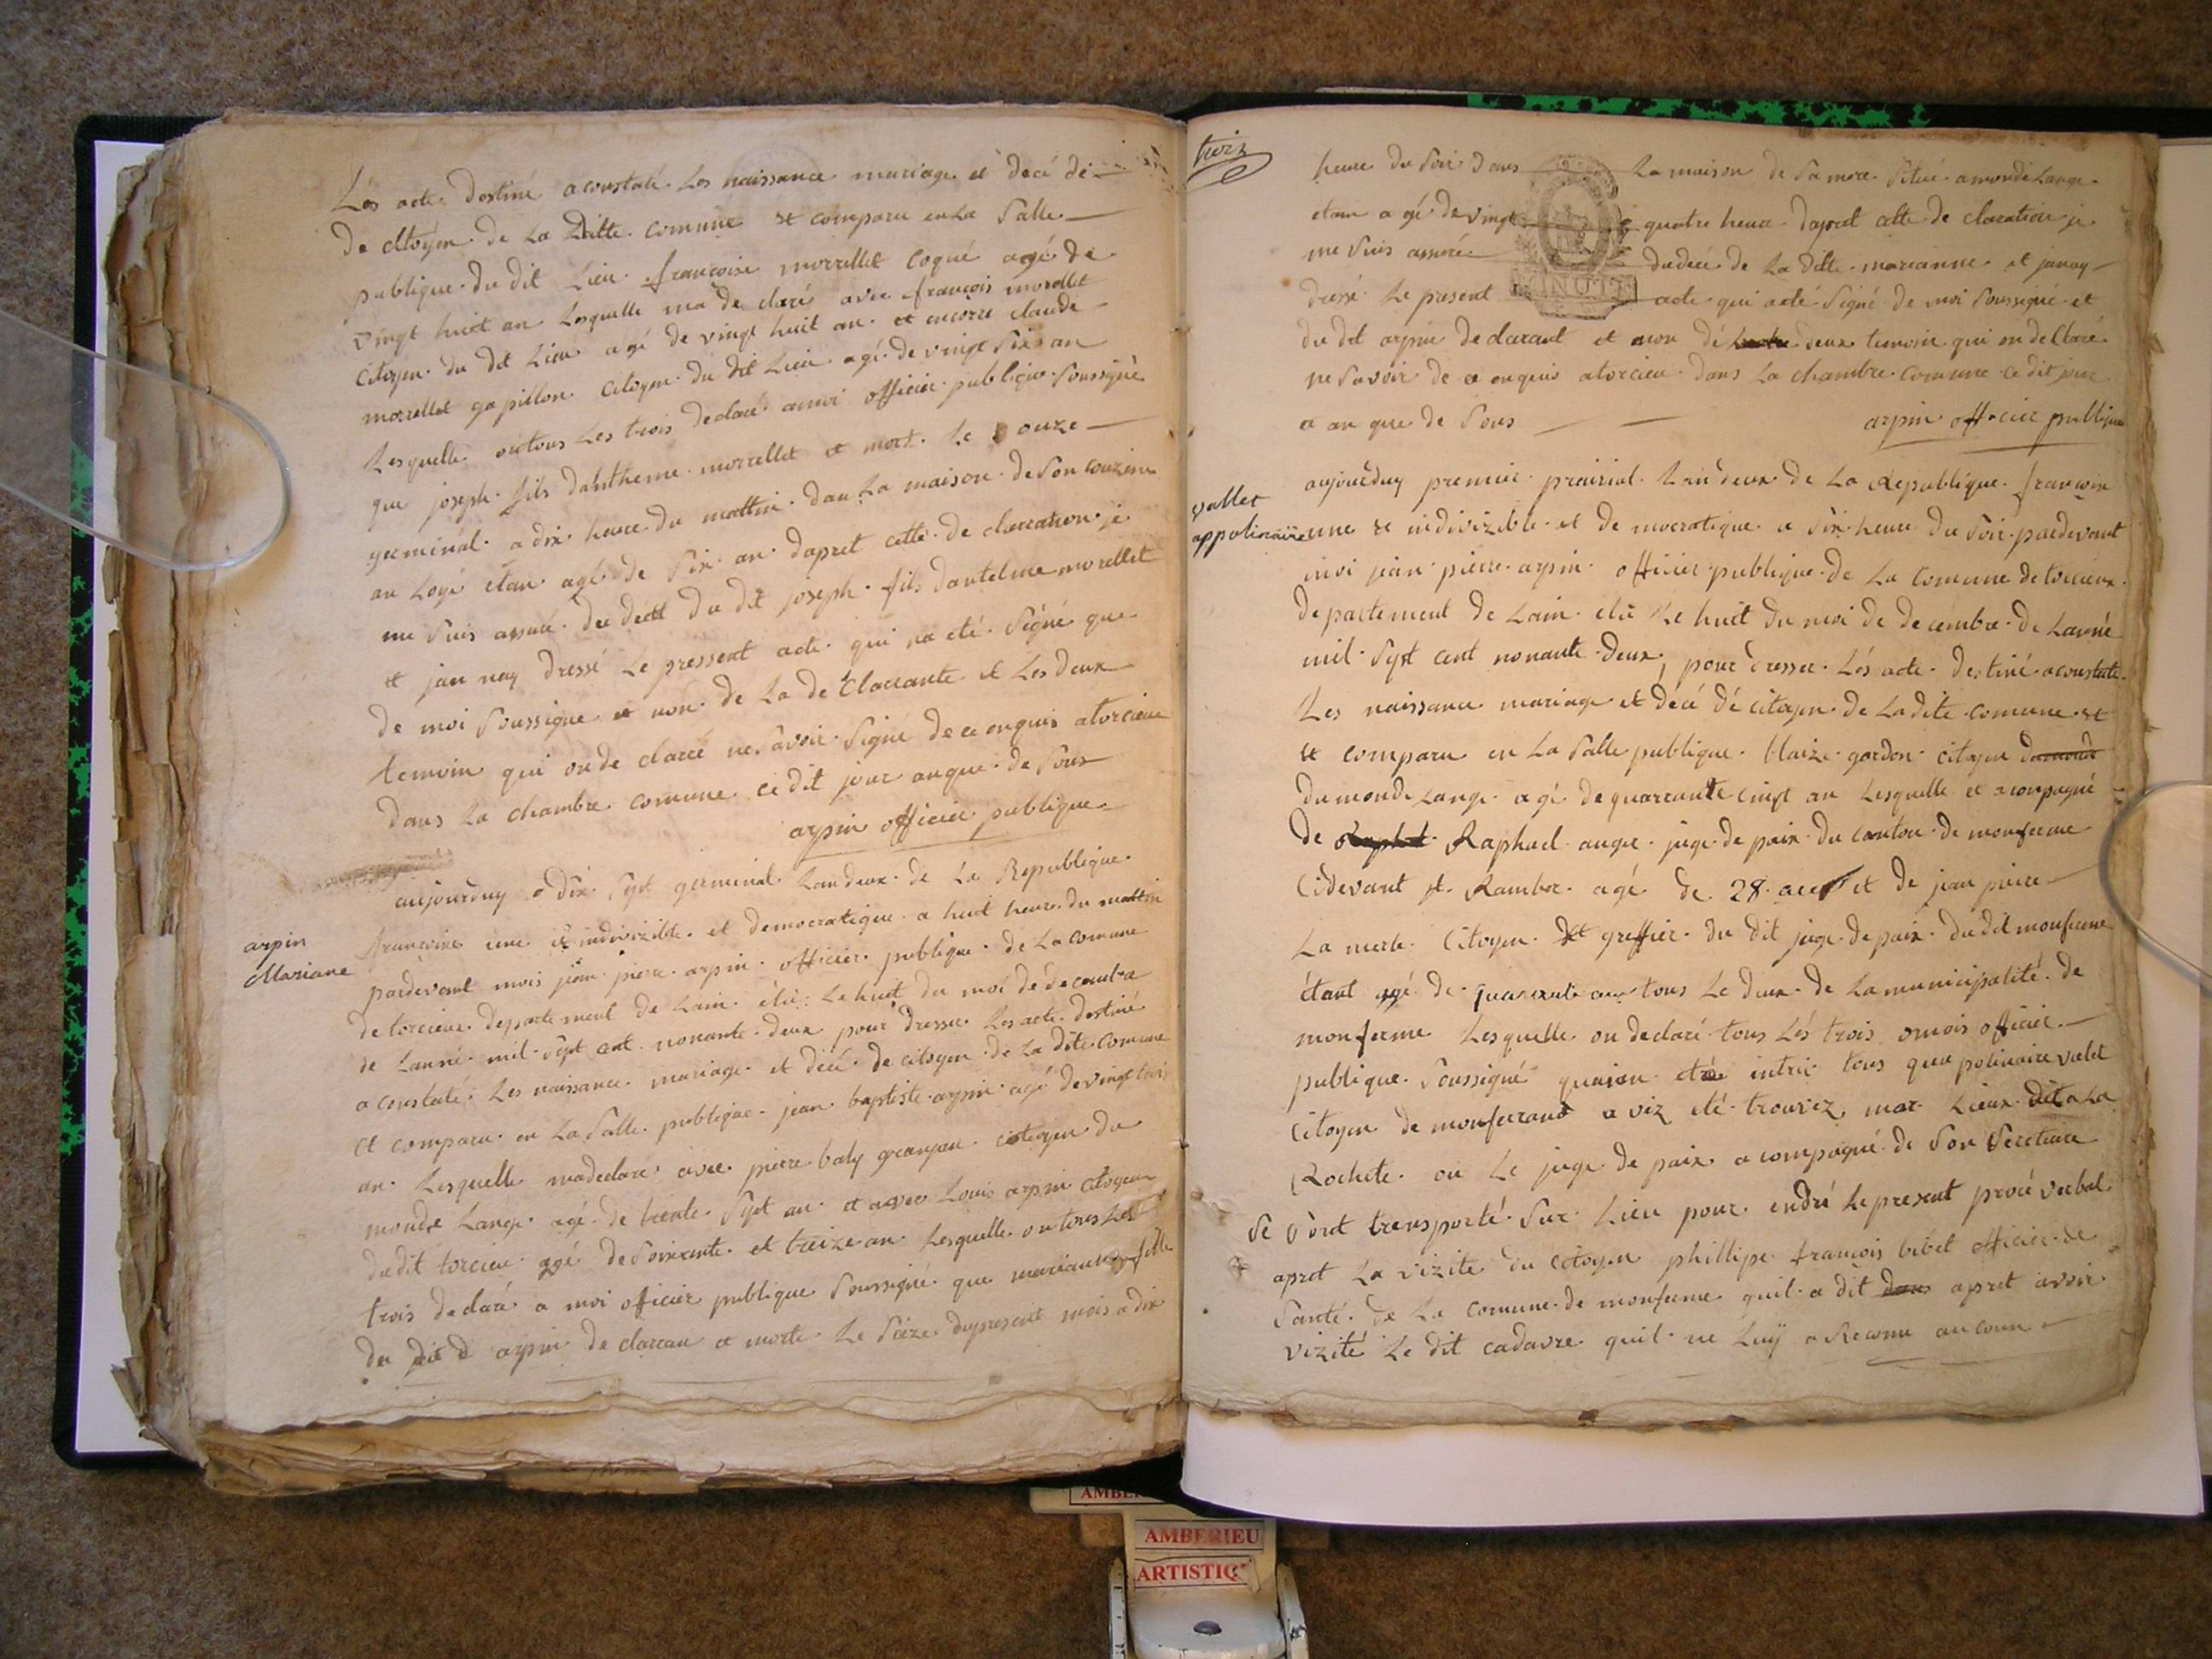 Lés acte destiné a constaté Les naissance mariage et decé dé
de citoyen de La Ditte comune et comparu en La Salle
publique du dit Lieu françoise morrellet coqué agé de
vingt huit an Lesquelle ma de claré avec françois morellet
citoyen du dit Lieu agé de vingt huit an et encorre claude
morrellet papillon citoyen du dit Lieu agé de vingt Six an
Lesquelle on tous Les trois declaré amoi officier publique Soussigné
que joseph fils danthenne morrellet et mort Le onze
germinal a dix heure du mattin dan La maison de Son couzin
an Logé etan agé de Six an dapret cette de clarration je
me Suis assuré du décét du dit joseph fils dantelme morellet
et jan nay dressé Le pressent acte qui na eté Signé que
de moi Soussigné et non de La dé clarrante et Les deux
temoin qui on de clarré ne Savoir Signé de ce onquis atorcieu
dans La chambre comune ce dit jour an que de Sous
arpin officier publique
arpin
Mariane
aujourduy a dix Sept germinal Lan deux de La Republique
françoise une et indivizible et democratique a huit heure du mattin
pardevant mois jean piere arpin officier publique de La comune
de torcieux departement de Lain élu Le huit du moi de decembre
de Lanné mil Sept cent nonante deux pour dresser Les acte destiné
a constaté Les naissance mariage et décé de citoyen de La dite comune
et comparu en La Salle publique jean baptiste arpin agé de vingt trois
an Lesquelle ma declaré avec pierre baly granjan citoyen du
monde Lange agé de trente Sept an et avec Louis arpin citoyen
du dit torcieu agé de Soixante et treize an Lesquelle on tous Les
trois declaré a moi officier publique Soussigné que marianne fille
du dit arpin de clarran et morte Le Seize du present mois a dix
troix
heure du Soir dans La maison de Sa mere Situé a monde Lange
etan a gé de vingt quatre heure dapret cette de claration je
me Suis assuré du decé de La ditte marianne et jan ay
dressé Le present acte qui a eté Signé de moi Soussigné et
du dit arpin declarant et non dé deux temoin qui on declaré
ne Savoir de ce enquis a torcieu dans La chambre comune ce dit jour
et an que de Sous
arpin officier publique
vallet
appolinaire
aujourduy premier prairial Lan deux de La Republique françoise
une et indivizible et de mocratique a Six heure du Soir pardevant
moi jean pierre arpin officier publique de La Comune de torcieux
departement de Lain elu Le huit du moi de decembre de Lanné
mil Sept cent nonante deux, pour dresser Lés acte destiné a constaté
Les naissance mariage et décé dé citoyen de La dite comune et
et comparu en La Salle publique blaize gordon citoyen
du monde Lange a gé de quarrante cinq an Lesquelle et acompagné
de Raphael auger juge de paix du canton de monferme
Cidevant st Rambert agé de 28 an et de jean pierre
La merle Citoyen greffier du dit juge de paix du dit monferme
étant agé de quarante an tous Le deux de La municipalité de
monferme Lesquelle on declaré tous Lés trois amois officier
publique Soussigné tous que polinaire valet
Citoyen de monferrand a viz eté trouvez mor Lieux dit a La
Rochete ou Le juge de paix a compagné de Son Secretaire
Se Sont transporté Sur Lieu pour endré Le present procé verbal
apret La vizite du citoyen phillipe françois bibet officier de
Santé de La comune de monferme quil a dit apret avoir
vizité Le dit cadavre quil ne Luy a Reconu aucunn
AMBERIEU
ARTISTIQ